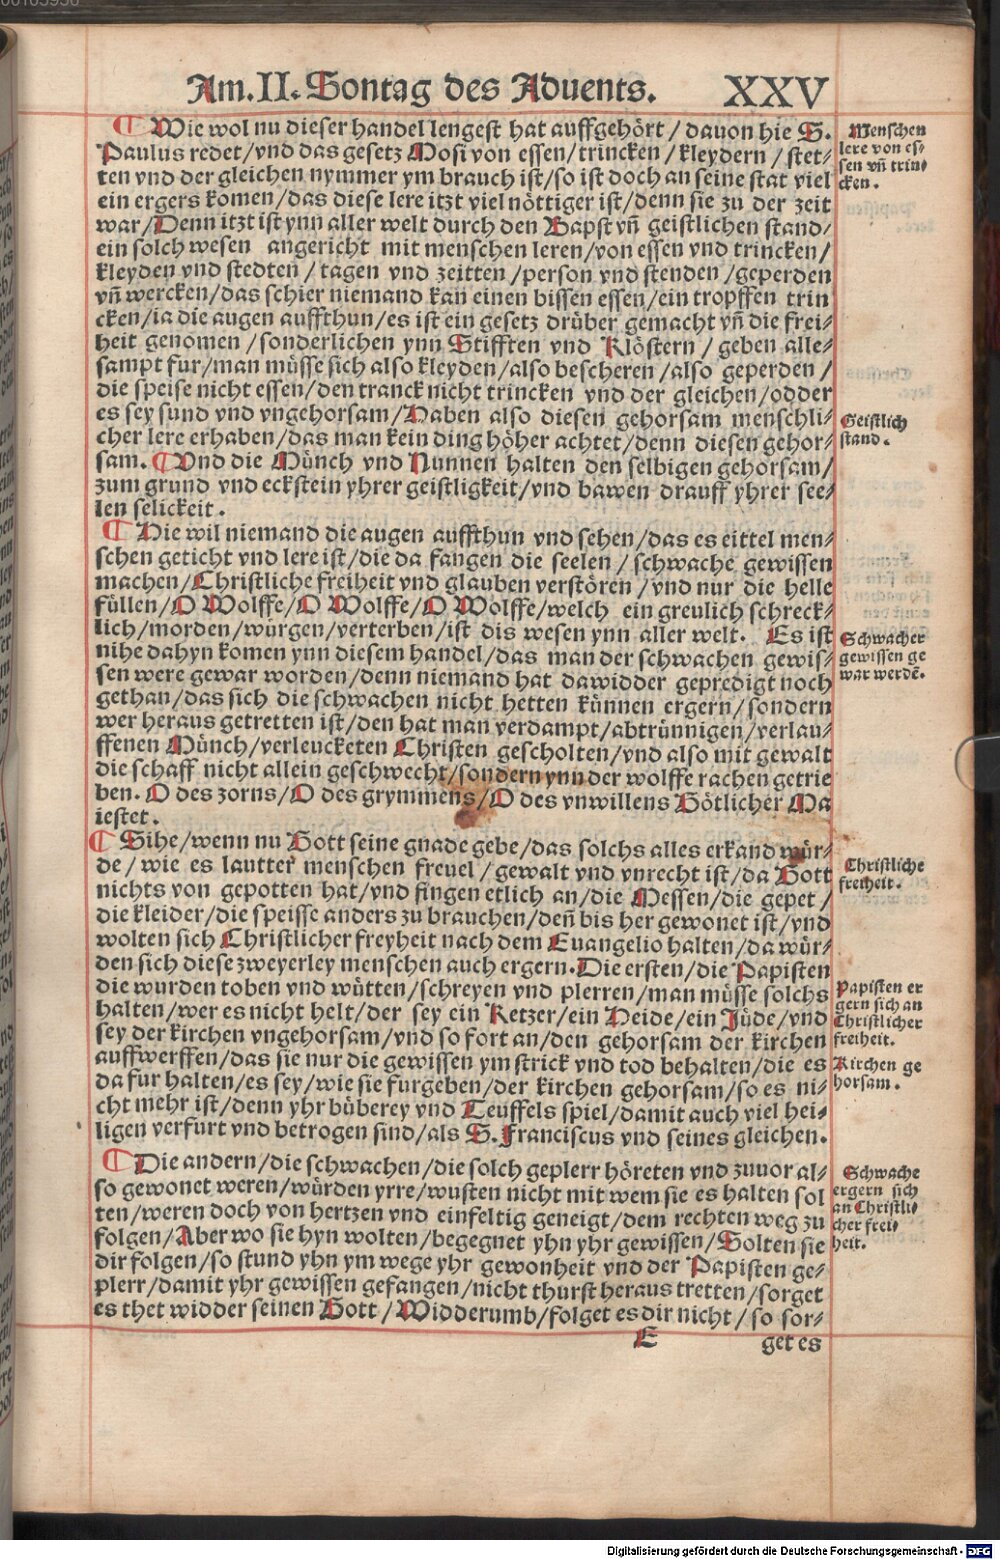 Am. II. Sontag des Aduents. XXV
¶ Wie wol nu dieser handel lengest hat auffgehört / dauon hie S.
Paulus redet/vnd das gesetz Mosi von essen/trincken / kleydern / stet⸗
ten vnd der gleichen nymmer ym brauch ist/so ist doch an seine stat viel
ein ergers komen/das diese lere itzt viel nöttiger ist/denn sie zu der zeit
war/Denn itzt ist ynn aller welt durch den Bapst vñ geistlichen stand/
ein solch wesen angericht mit menschen leren/von essen vnd trincken/
kleyden vnd stedten / tagen vnd zeitten /person vnd stenden /geperden
vñ wercken/das schier niemand kan einen bissen essen/ein tropffen trin
cken/ia die augen auffthun/es ist ein gesetz drüber gemacht vñ die frei⸗
heit genomen /sonderlichen ynn Stifften vnd Klöstern / geben alle⸗
sampt fur/man müsse sich also kleyden/also bescheren /also geperden /
die speise nicht essen/den tranck nicht trincken vnd der gleichen/odder
es sey sund vnd vngehorsam/Haben also diesen gehorsam menschli⸗
cher lere erhaben/das man kein ding höher achtet/denn diesen gehor⸗
sam. ¶ Vnd die Münch vnd Nunnen halten den selbigen gehorsam/
zum grund vnd eckstein yhrer geistligkeit/vnd bawen drauff yhrer see⸗
len selickeit.
¶ Hie wil niemand die augen auffthun vnd sehen/das es eittel men⸗
schen geticht vnd lere ist/die da fangen die seelen / schwache gewissen
machen/Christliche freiheit vnd glauben verstören /vnd nur die helle
füllen/O Wolffe/O Wolffe/O Wolffe/welch ein greulich schreck⸗
lich/morden/würgen/verterben/ist dis wesen ynn aller welt. Es ist
nihe dahyn komen ynn diesem handel/das man der schwachen gewis⸗
sen were gewar worden/denn niemand hat dawidder gepredigt noch
gethan/das sich die schwachen nicht hetten künnen ergern/sondern
wer heraus getretten ist/den hat man verdampt/abtrünnigen/verlau⸗
ffenen Münch/verleucketen Christen gescholten/vnd also mit gewalt
die schaff nicht allein geschwecht/sondern ynn der wolffe rachen getrie
ben. O des zorns/O des grymmens/O des vnwillens Götlicher Ma
iestet.
¶ Sihe/wenn nu Gott seine gnade gebe/das solchs alles erkand wür⸗
de/ wie es lautter menschen freuel /gewalt vnd vnrecht ist/da Gott
nichts von gepotten hat/vnd fingen etlich an/die Messen/die gepet /
die kleider/die speisse anders zu brauchen/deñ bis her gewonet ist/vnd
wolten sich Christlicher freyheit nach dem Euangelio halten/da wür⸗
den sich diese zweyerley menschen auch ergern. Die ersten/die Papisten
die wurden toben vnd wütten/schreyen vnd plerren/man müsse solchs
halten/wer es nicht helt/der sey ein Ketzer/ein Heide/ein Jüde/vnd
sey der kirchen vngehorsam/vnd so fort an/den gehorsam der kirchen
auffwerffen/das sie nur die gewissen ym strick vnd tod behalten/die es
da fur halten/es sey/wie sie furgeben/der kirchen gehorsam/so es ni⸗
cht mehr ist/denn yhr büberey vnd Teuffels spiel/damit auch viel hei⸗
ligen verfurt vnd betrogen sind/als S. Franciscus vnd seines gleichen.
¶ Die andern/die schwachen/die solch geplerr höreten vnd zuuor al⸗
so gewonet weren/würden yrre/wusten nicht mit wem sie es halten sol
ten/weren doch von hertzen vnd einfeltig geneigt/dem rechten weg zu
folgen/Aber wo sie hyn wolten/begegnet yhn yhr gewissen/Solten sie
dir folgen/so stund yhn ym wege yhr gewonheit vnd der Papisten ge⸗
plerr/damit yhr gewissen gefangen/nicht thurst heraus tretten/sorget
es thet widder seinen Gott / Widderumb/folget es dir nicht/ so sor⸗
E get es
Menschen
lere von es⸗
sen vñ trin⸗
cken.
Geistlich
stand.
Schwacher
gewissen ge
war werdē.
Christliche
freiheit.
Papisten er
gern sich an
Christlicher
freiheit.
Kirchen ge
horsam.
Schwache
ergern sich
an Christli⸗
cher frei⸗
heit.
Digitalisierung gefördert durch die Deutsche Forschungsgemeinschaft - DFG